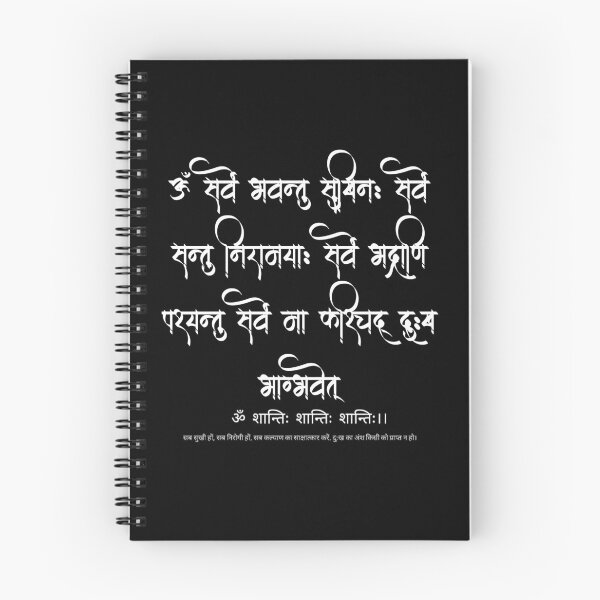 ॐ सर्वे भवन्तु सुखिनः सर्वे
सन्तु निरामयाः सर्वे भद्राणि
पश्यन्तु सर्वे मा कश्चिद् दुःख
भाग्भवेत्
ॐ शान्तिः शान्तिः शान्तिः।।
सब सुखी हों, सब निरोगी हों, सब कल्याण का साक्षात्कार करें, दुःख का अंश किसी को प्राप्त न हो।